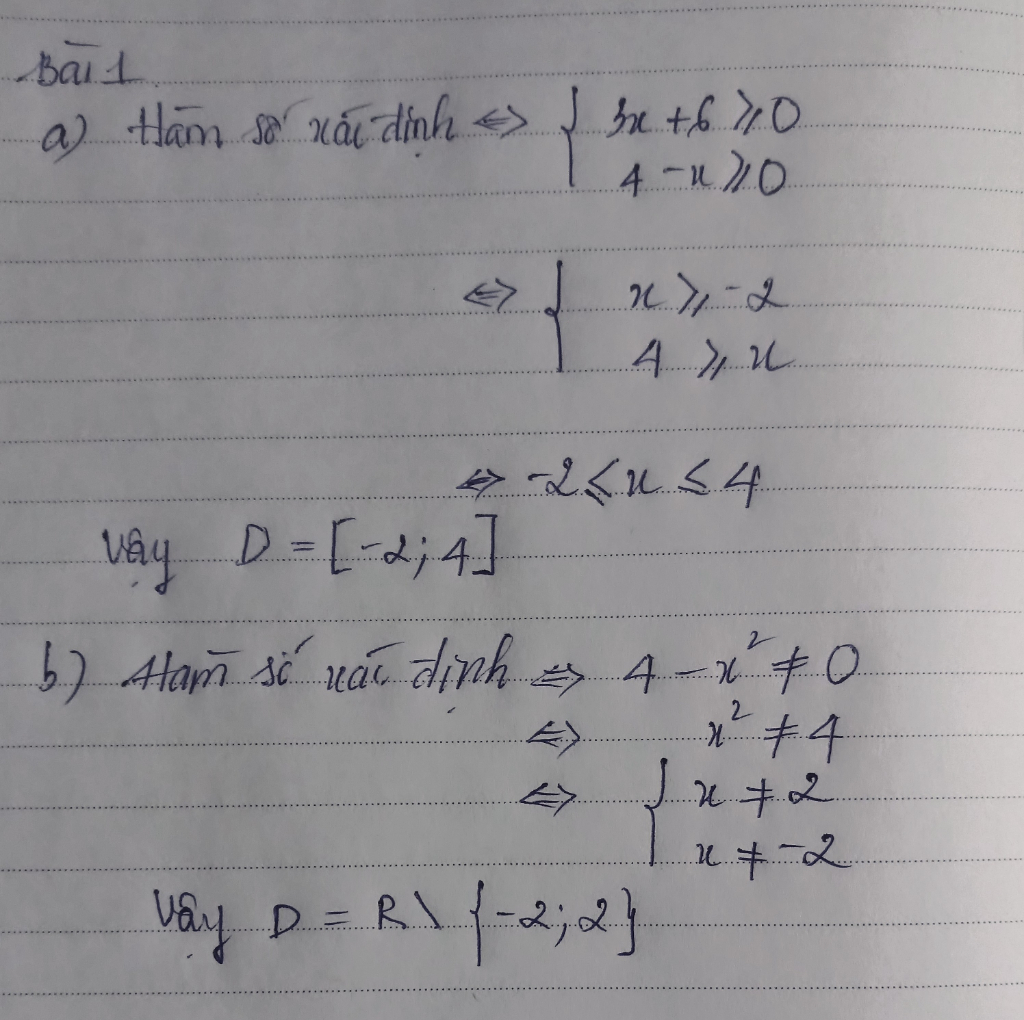 Bài 1
a) Hàm số xác định ⇔ { 3x + 6 ⩾ 0
4 - x ⩾ 0
⇔ { x ⩾ -2
4 ⩾ x
⇔ -2 ≤ x ≤ 4
Vậy D = [-2; 4]
b) Hàm số xác định ⇔ 4 - x² ≠ 0
⇔ x² ≠ 4
⇔ { x ≠ 2
x ≠ -2
Vậy D = R \ {-2; 2}